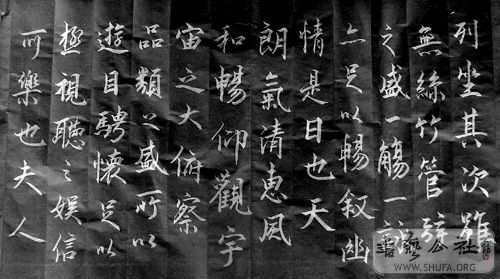 列坐其次雖
無絲竹管
之盛一觴一詠
亦足以暢叙幽
情是日也天
朗氣清惠風
和暢仰觀宇
宙之大俯察
品類之盛所以
遊目騁懷足以
極視聽之娛信
可樂也夫人
書藝公社
WWW.SHUFA.ORG